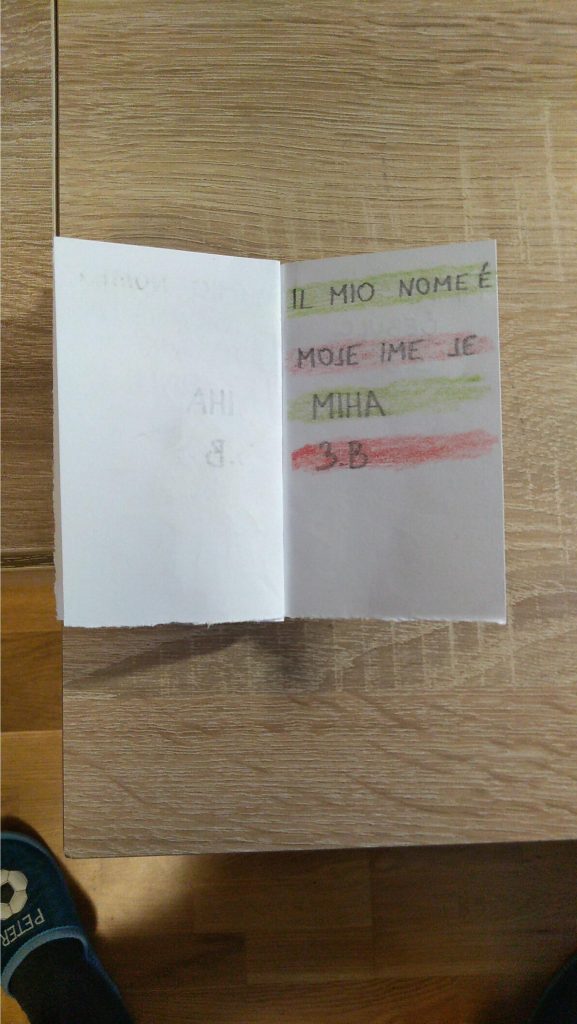 IL MIO NOME É
MOJE IME JE
MIHA
3.B
PETER